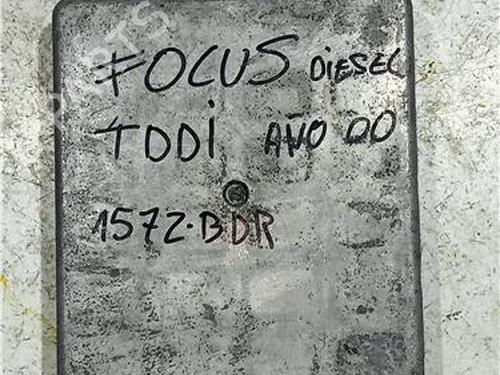 FOCUS DIESEL
TDDi AÑO 00
1572·BDR